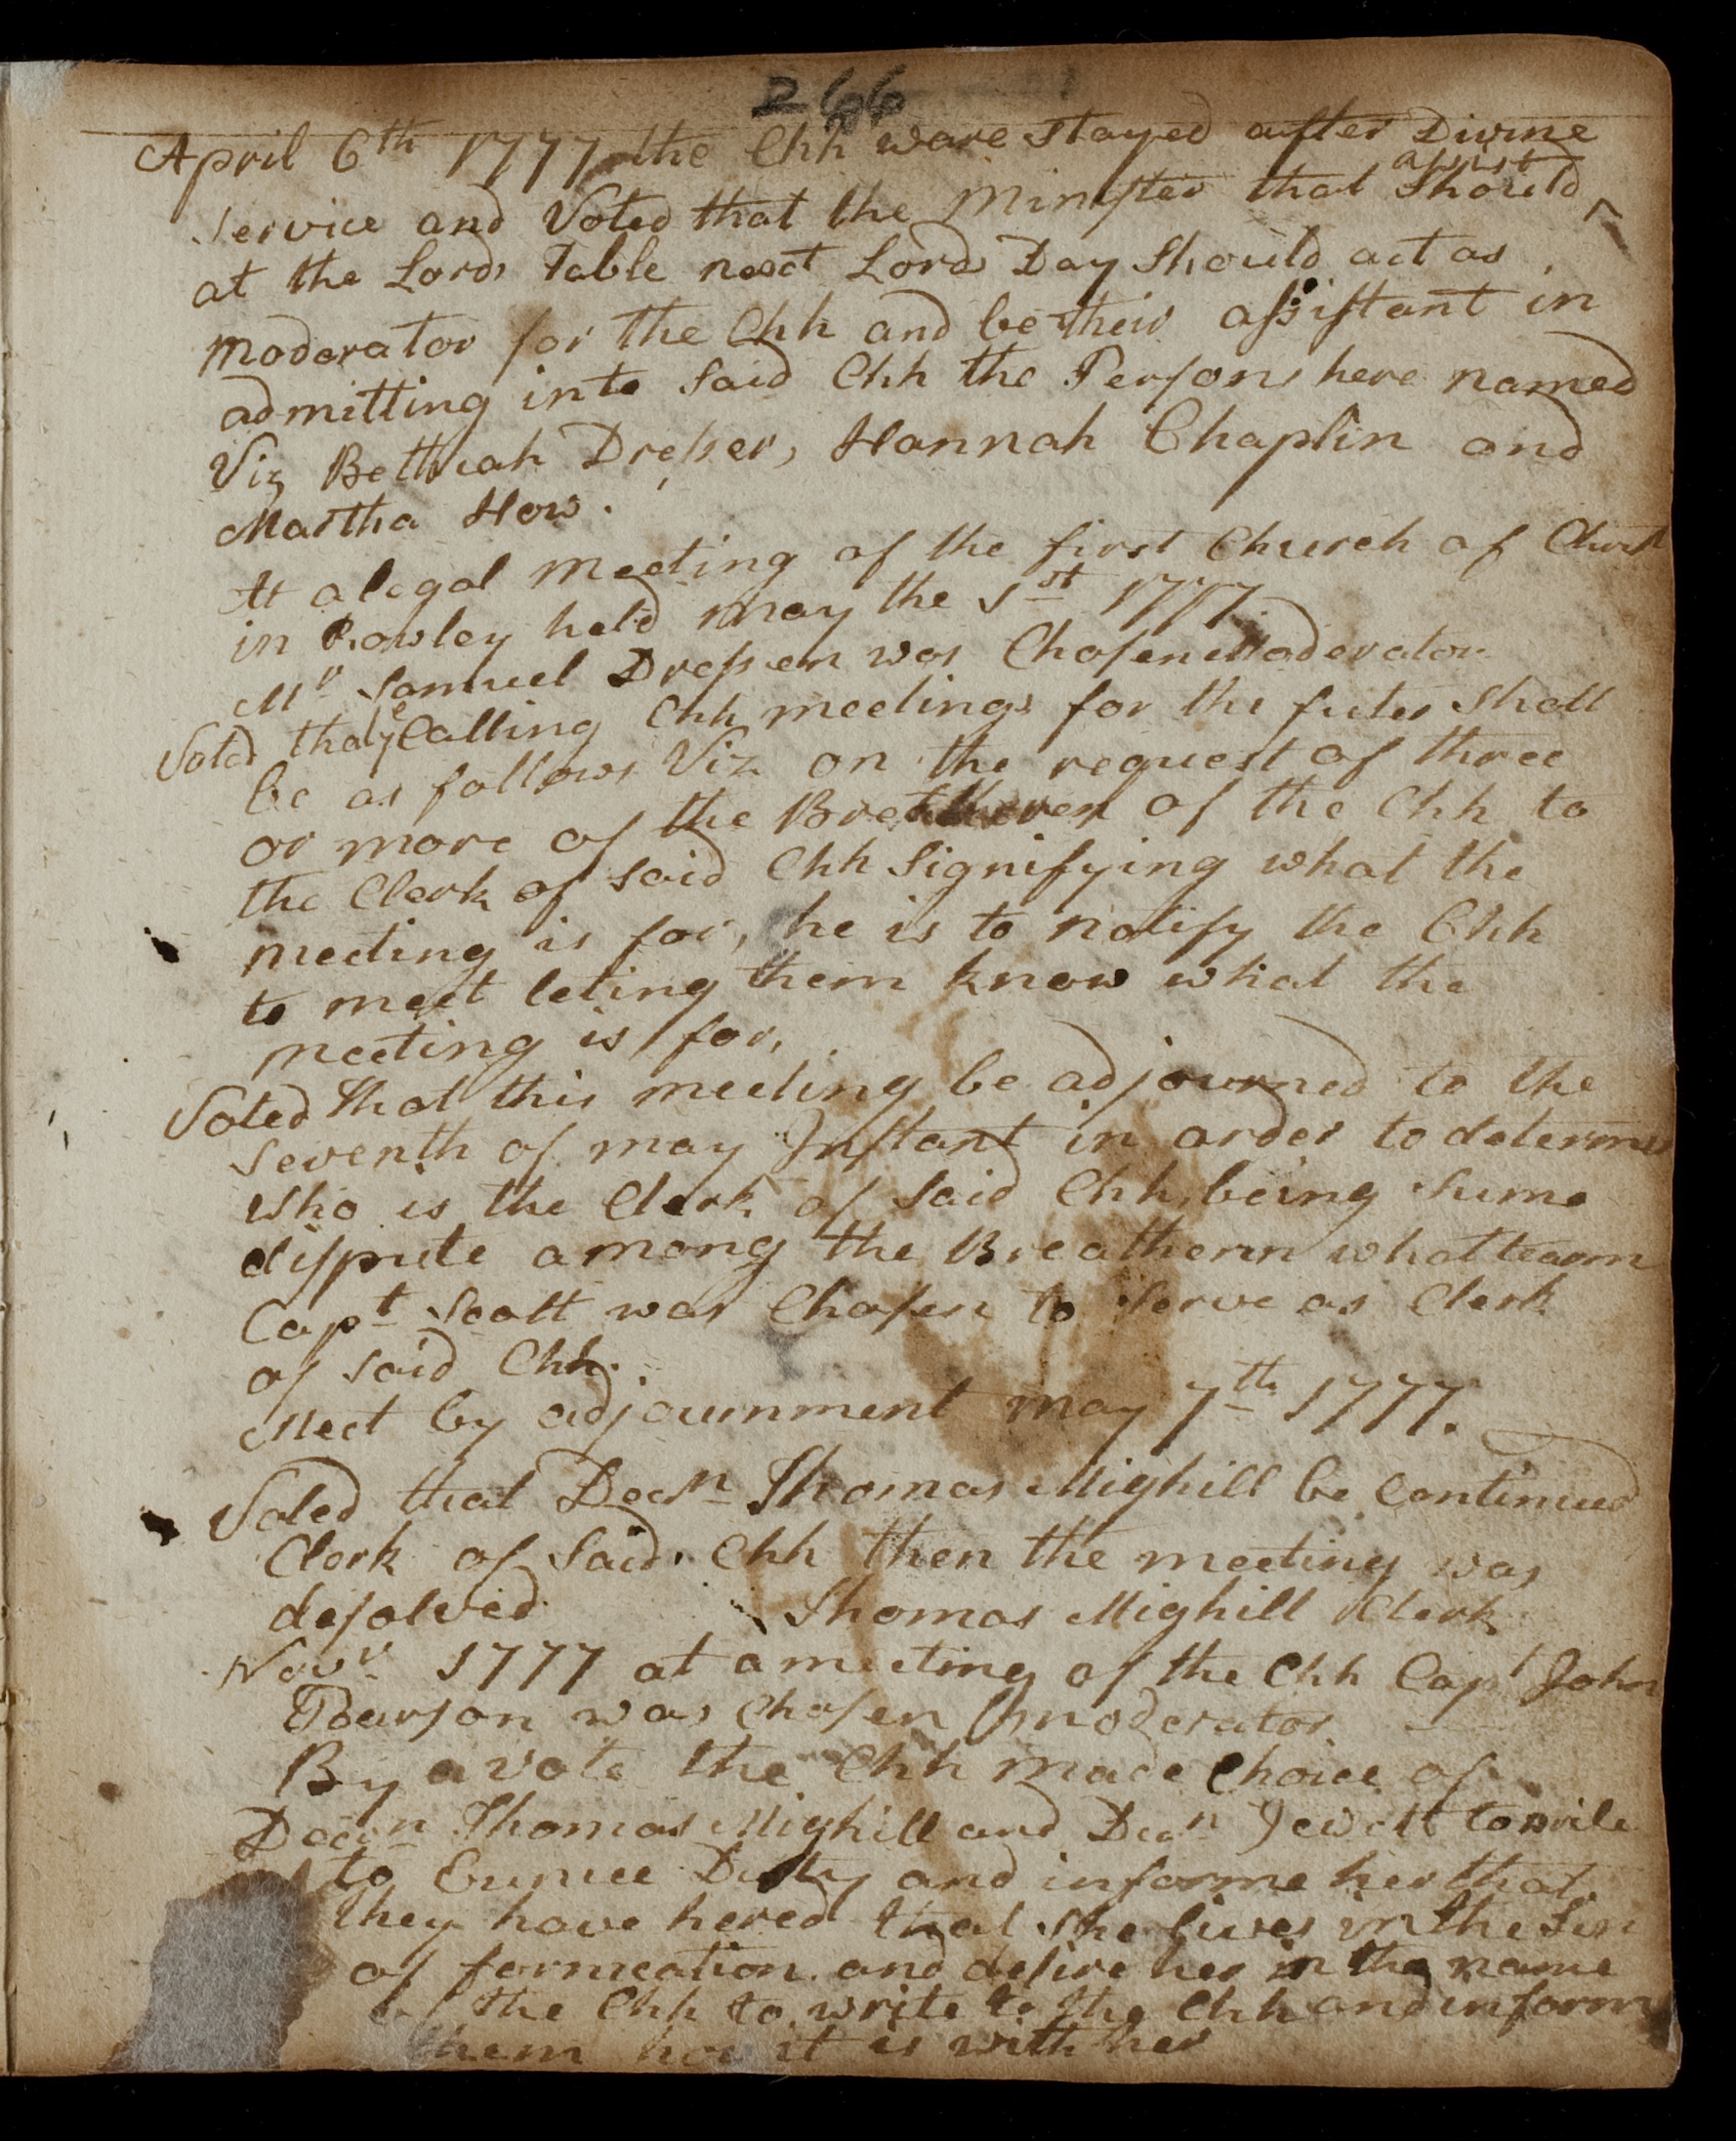 266
April 6th 1777 the Chh ware stayed after Divine
Service and Voted that the Minister that Should assist
at the Lords Table next Lords Day Should act as
moderator for the Chh and be their assistant in
admitting into Said Chh the Persons here named
Viz Bethuah Dresser, Hannah Chaplin and
Martha How.
At a legal meeting of the first Church of Christ
in Rowley held may the 1st 1777
Mr Samuel Dresser was Chosen Moderator
Voted that ye Calling Chh meetings for the futer Shall
be as follows Viz on the request of three
or more of the Bretheren of the Chh to
the Clerk of said Chh Signifying what the
meeting is for, he is to notify the Chh
to meet leting them know what the
meeting is for,
Voted that this meeting be adjourned to the
Seventh of may Instant in order to determe
who is the Clerk of Said Chh, being sume
dispute among the Breathern what tearm
Capt Scott was Chosen to Serve as Clerk
of said Chh.
Meet by adjournment may 7th 1777.
Voted that Deacn Thomas Mighill be Continued
Clerk of Said Chh then the meeting was
desolved Thomas Mighill Clerk
Novr 1777 at a meeting of the Chh Capt John
Pearson was Chosen moderator
By a vote the Chh made Choice of
Deacn Thomas Mighill and Dean Jewett to write
to Eunice Duty and informe her that
they have hered that She lives in the Sin
of fornication and desire her in the name
of the Chh to write to the Chh and inform
them how it is with her